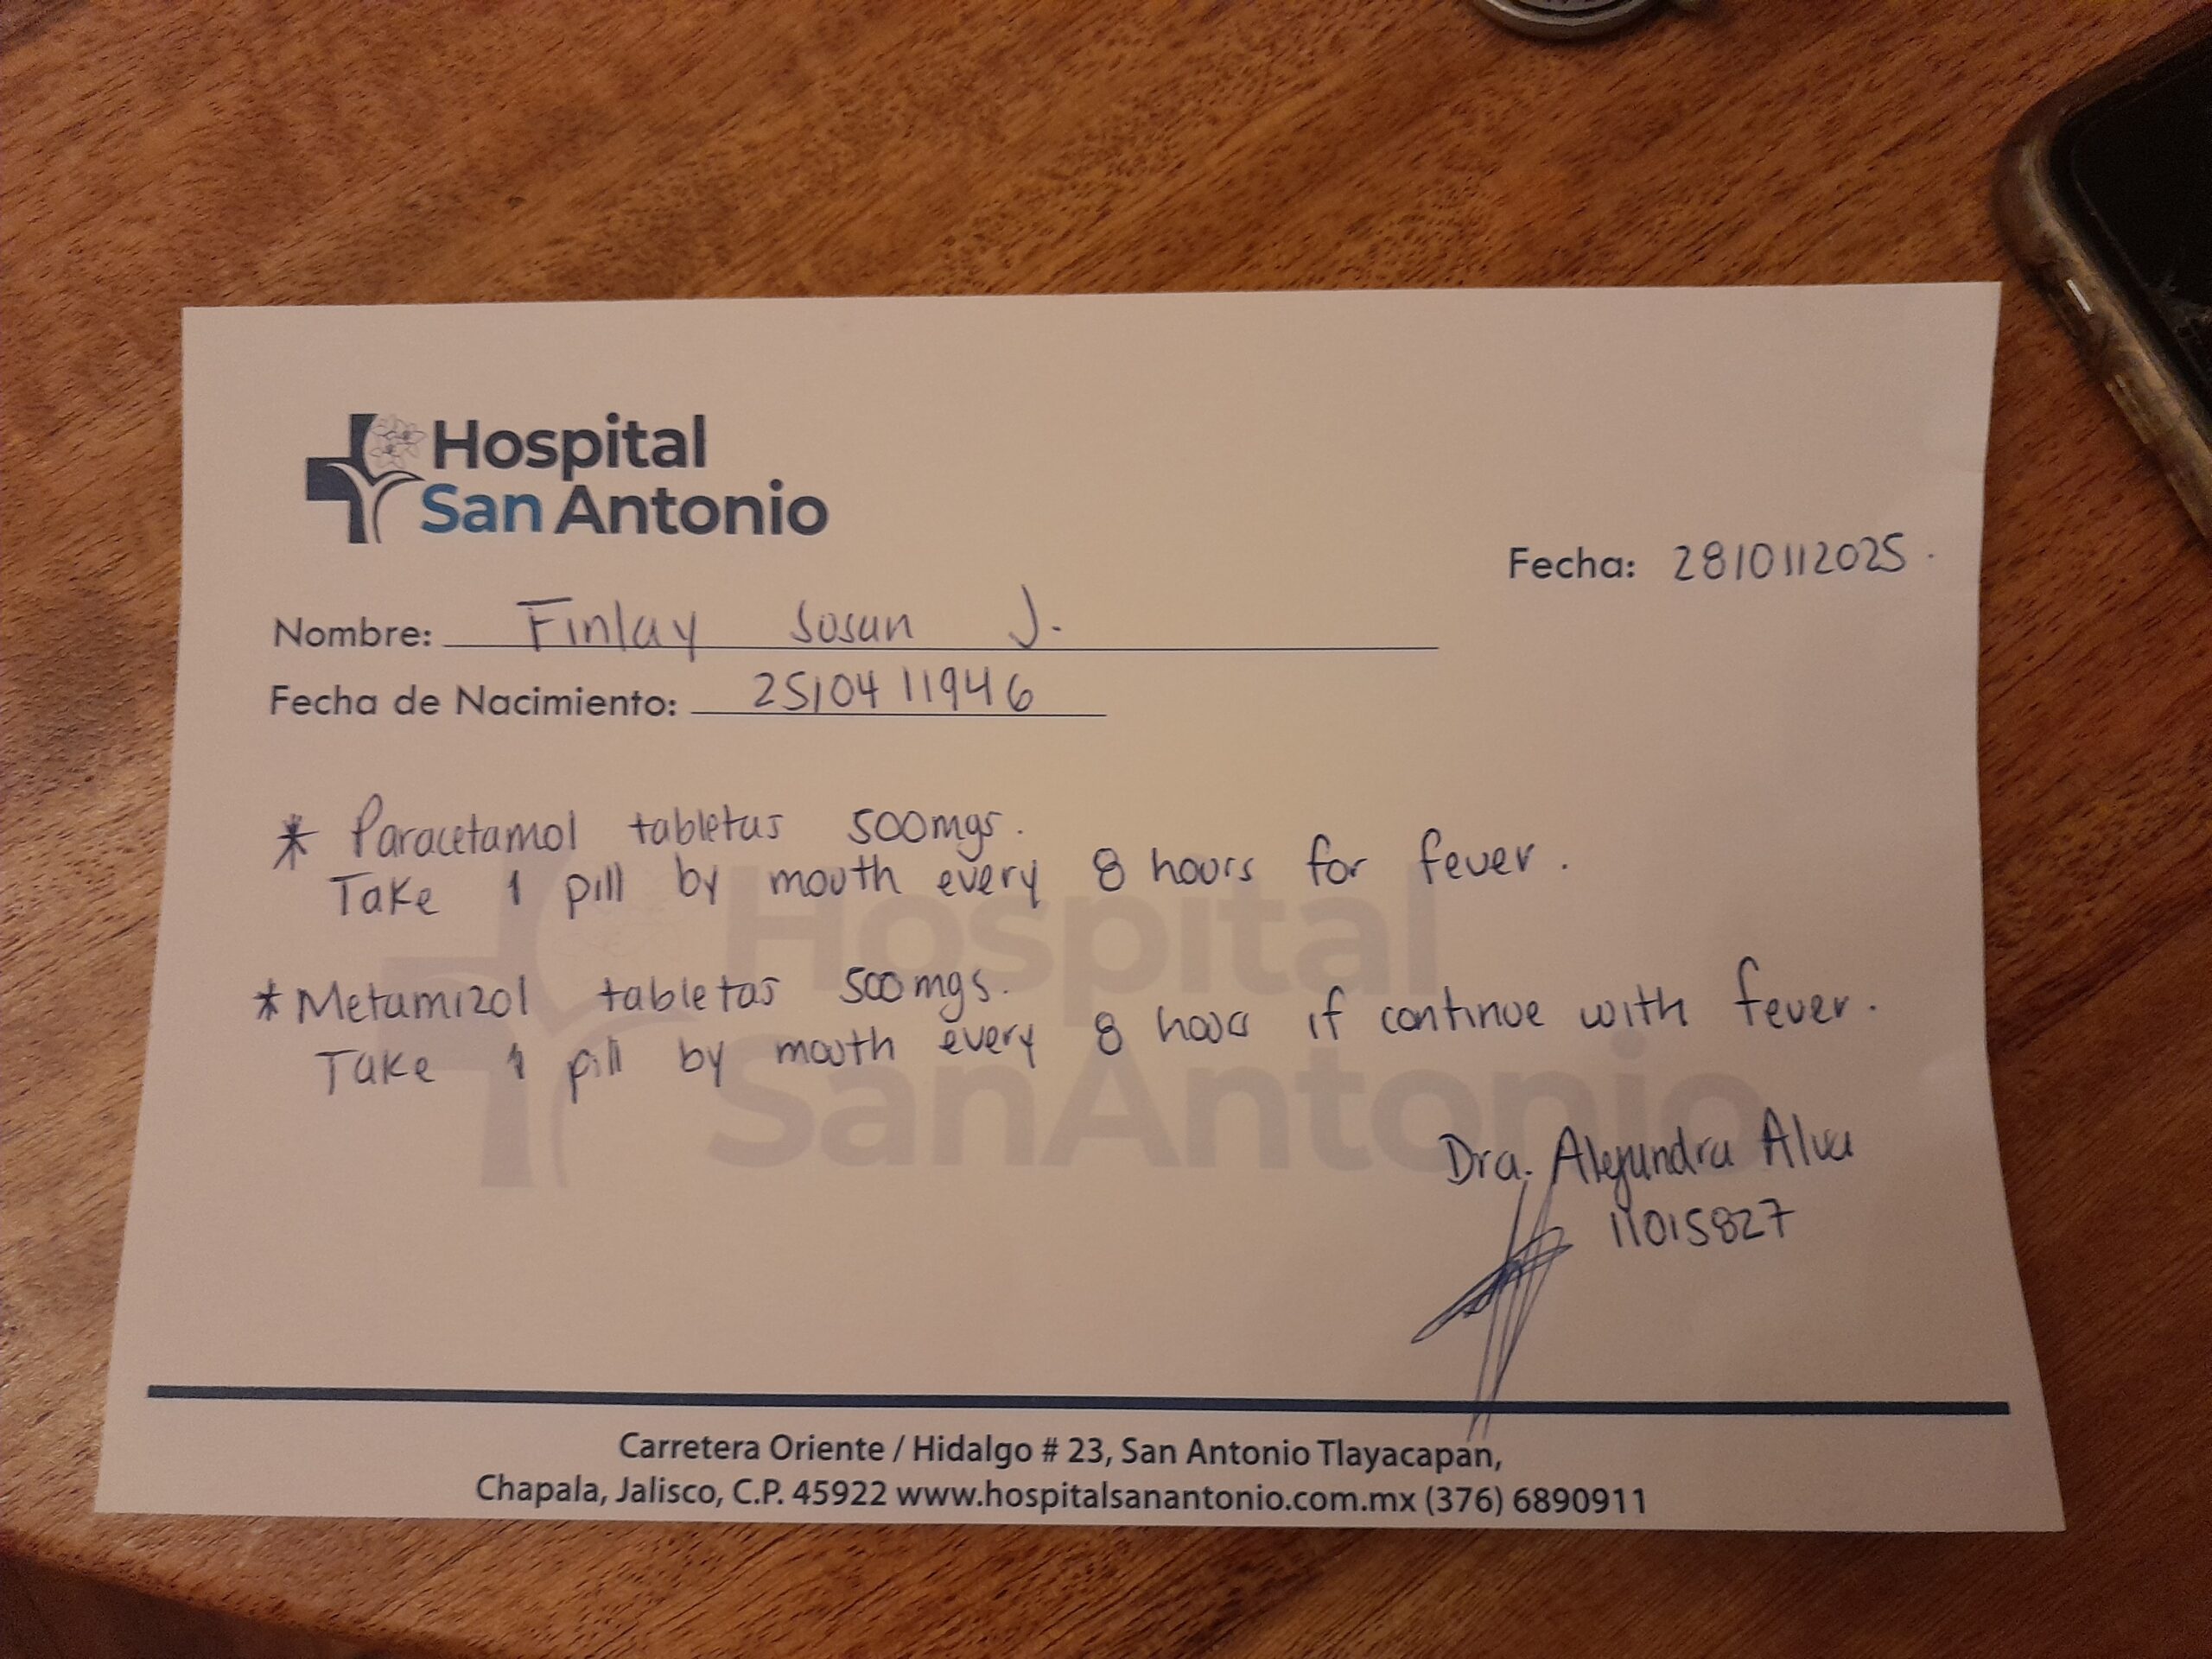 Hospital
San Antonio
Fecha: 28/01/2025.
Nombre: Finlay Susan J.
Fecha de Nacimiento: 25/04/1946
* Paracetamol tabletas 500mgs.
Take 1 pill by mouth every 8 hours for fever.
* Metamizol tabletas 500mgs.
Take 1 pill by mouth every 8 hours if continue with fever.
Hospital
SanAntonio
Dra. Alejandra Alva
11015827
Carretera Oriente / Hidalgo # 23, San Antonio Tlayacapan,
Chapala, Jalisco, C.P. 45922 www.hospitalsanantonio.com.mx (376) 6890911